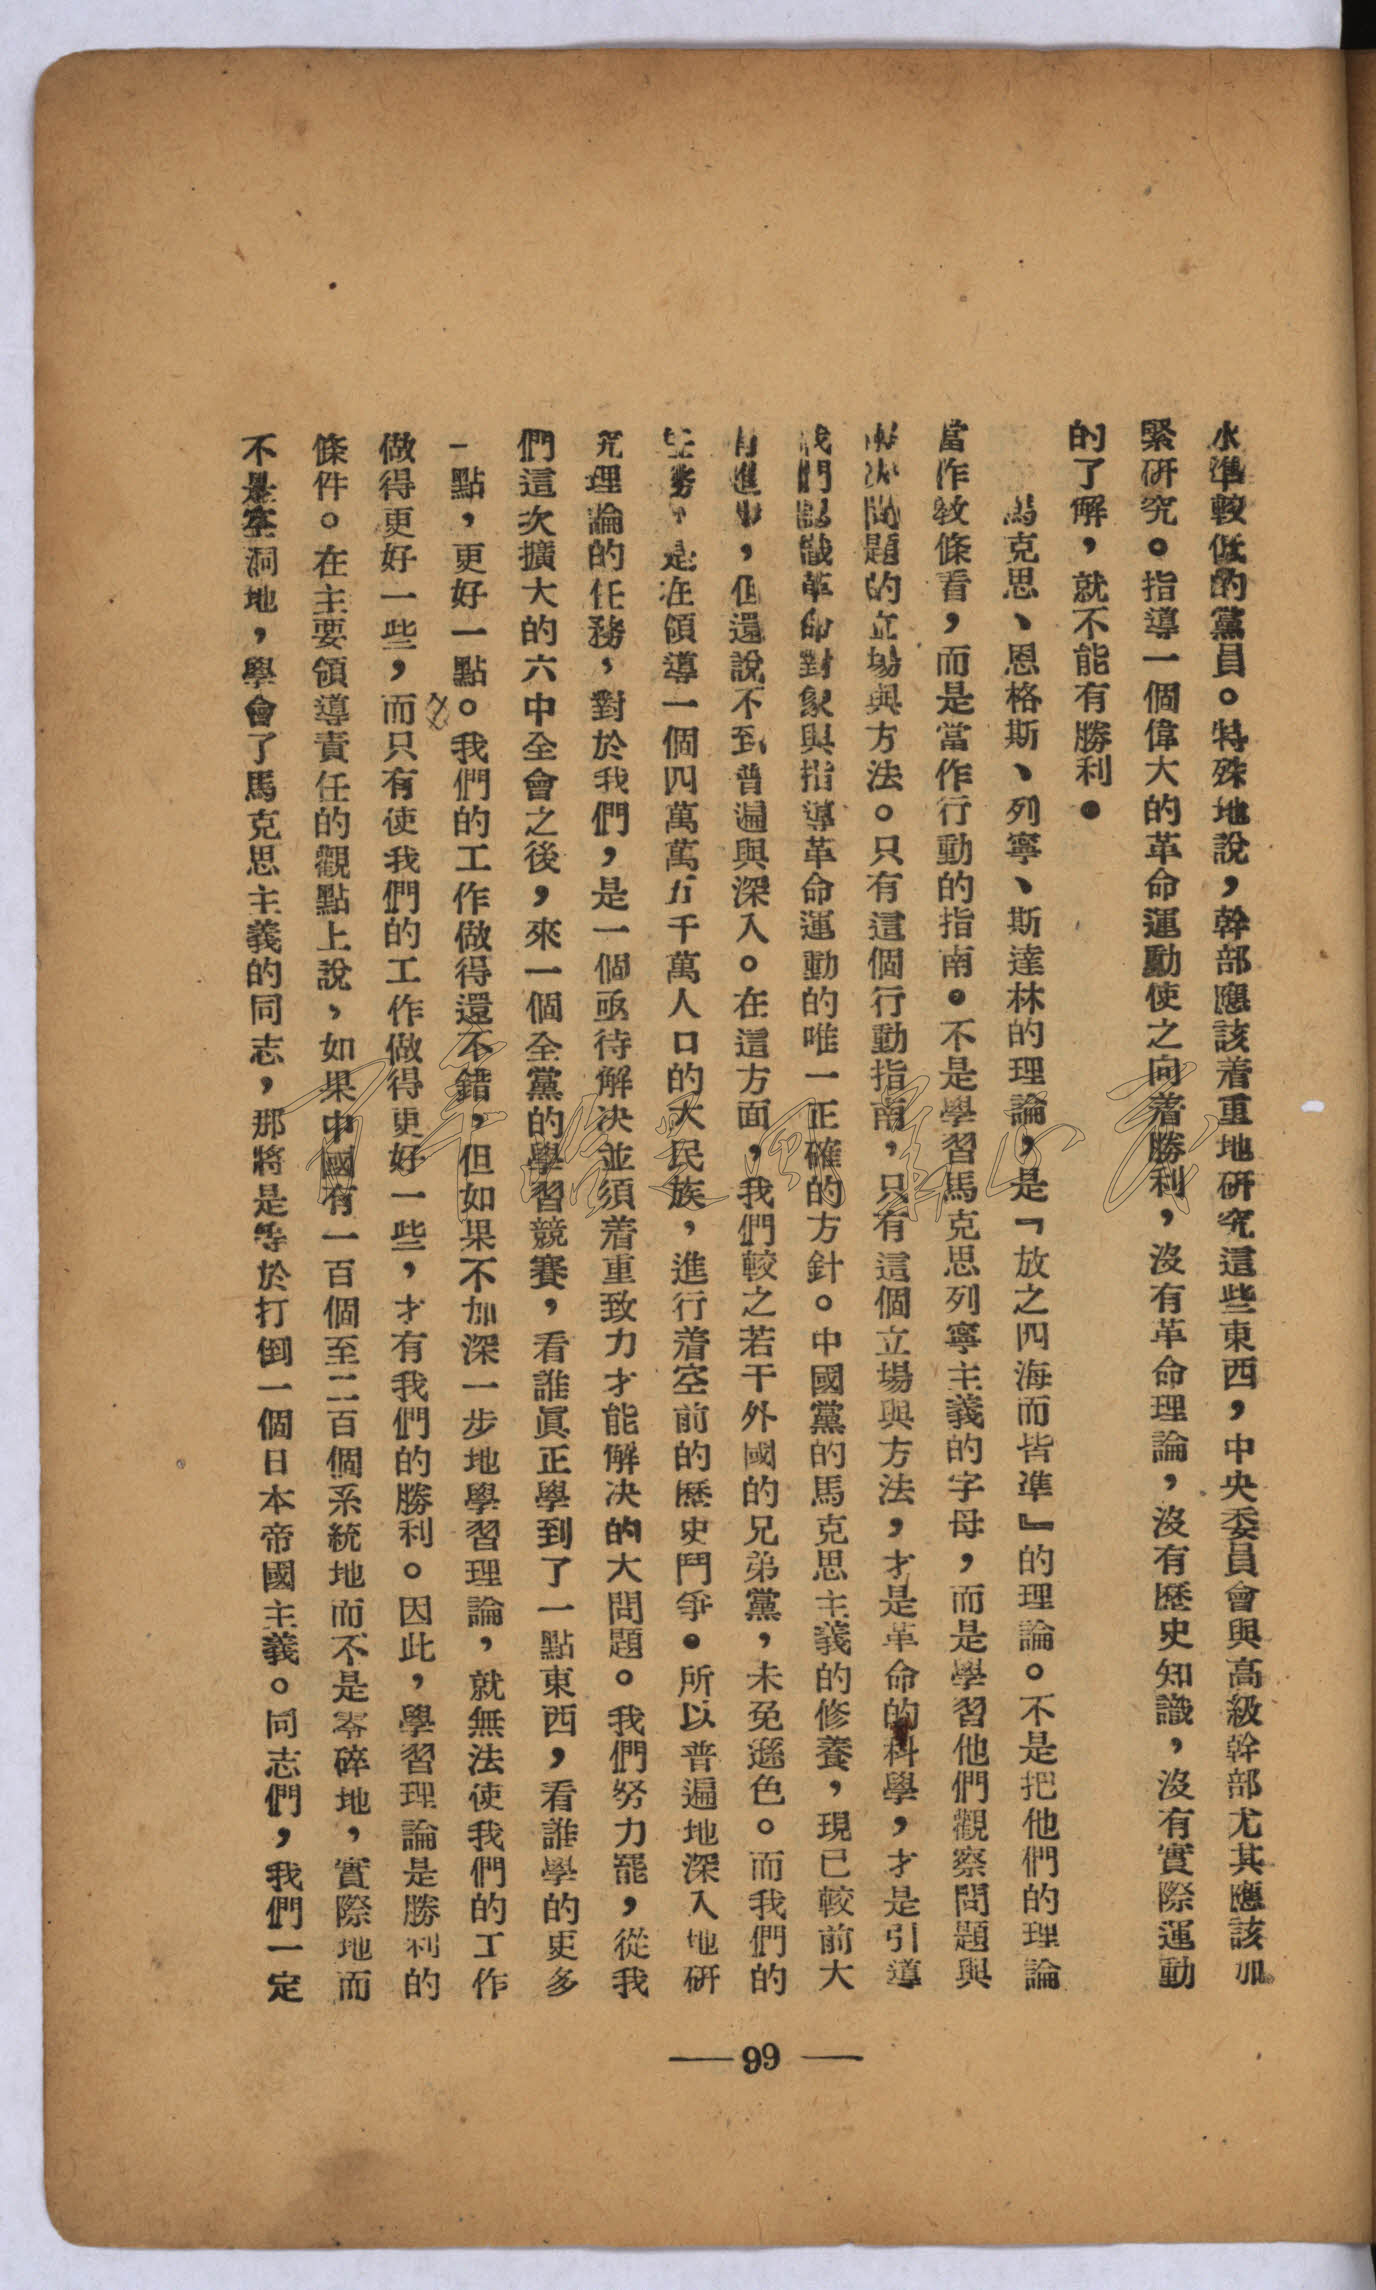 水準較低的黨員。特殊地說，幹部應該着重地研究這些東西，中央委員會與高級幹部尤其應該加
緊研究。指導一個偉大的革命運動使之向着勝利，沒有革命理論，沒有歷史知識，沒有實際運動
的了解，就不能有勝利●
馬克思、恩格斯、列寧、斯達林的理論，是『放之四海而皆準』的理論。不是把他們的理論
當作敎條看，而是當作行動的指南。不是學習馬克思列寧主義的字母，而是學習他們觀察問題與
解決問題的立場與方法。只有這個行動指南，只有這個立場與方法，才是革命的科學，才是引導
我們認識革命對象與指導革命運動的唯一正確的方針。中國黨的馬克思主義的修養，現已較前大
有進步，但還說不到普遍與深入。在這方面，我們較之若干外國的兄弟黨，未免遜色。而我們的
任務，是在領導一個四萬萬五千萬人口的大民族，進行着空前的歷史鬥爭●所以普遍地深入地研
究理論的任務，對於我們，是一個亟待解決並須着重致力才能解決的大問題。我們努力罷，從我
們這次擴大的六中全會之後，來一個全黨的學習競賽，看誰眞正學到了一點東西，看誰學的更多
一點，更好一點。我們的工作做得還不錯，但如果不加深一步地學習理論，就無法使我們的工作
做得更好一些，而只有使我們的工作做得更好一些，才有我們的勝利。因此，學習理論是勝利的
條件。在主要領導責任的觀點上說，如果中國有一百個至二百個系統地而不是零碎地，實際地而
不是空洞地，學會了馬克思主義的同志，那將是等於打倒一個日本帝國主義。同志們，我們一定
— 99 —